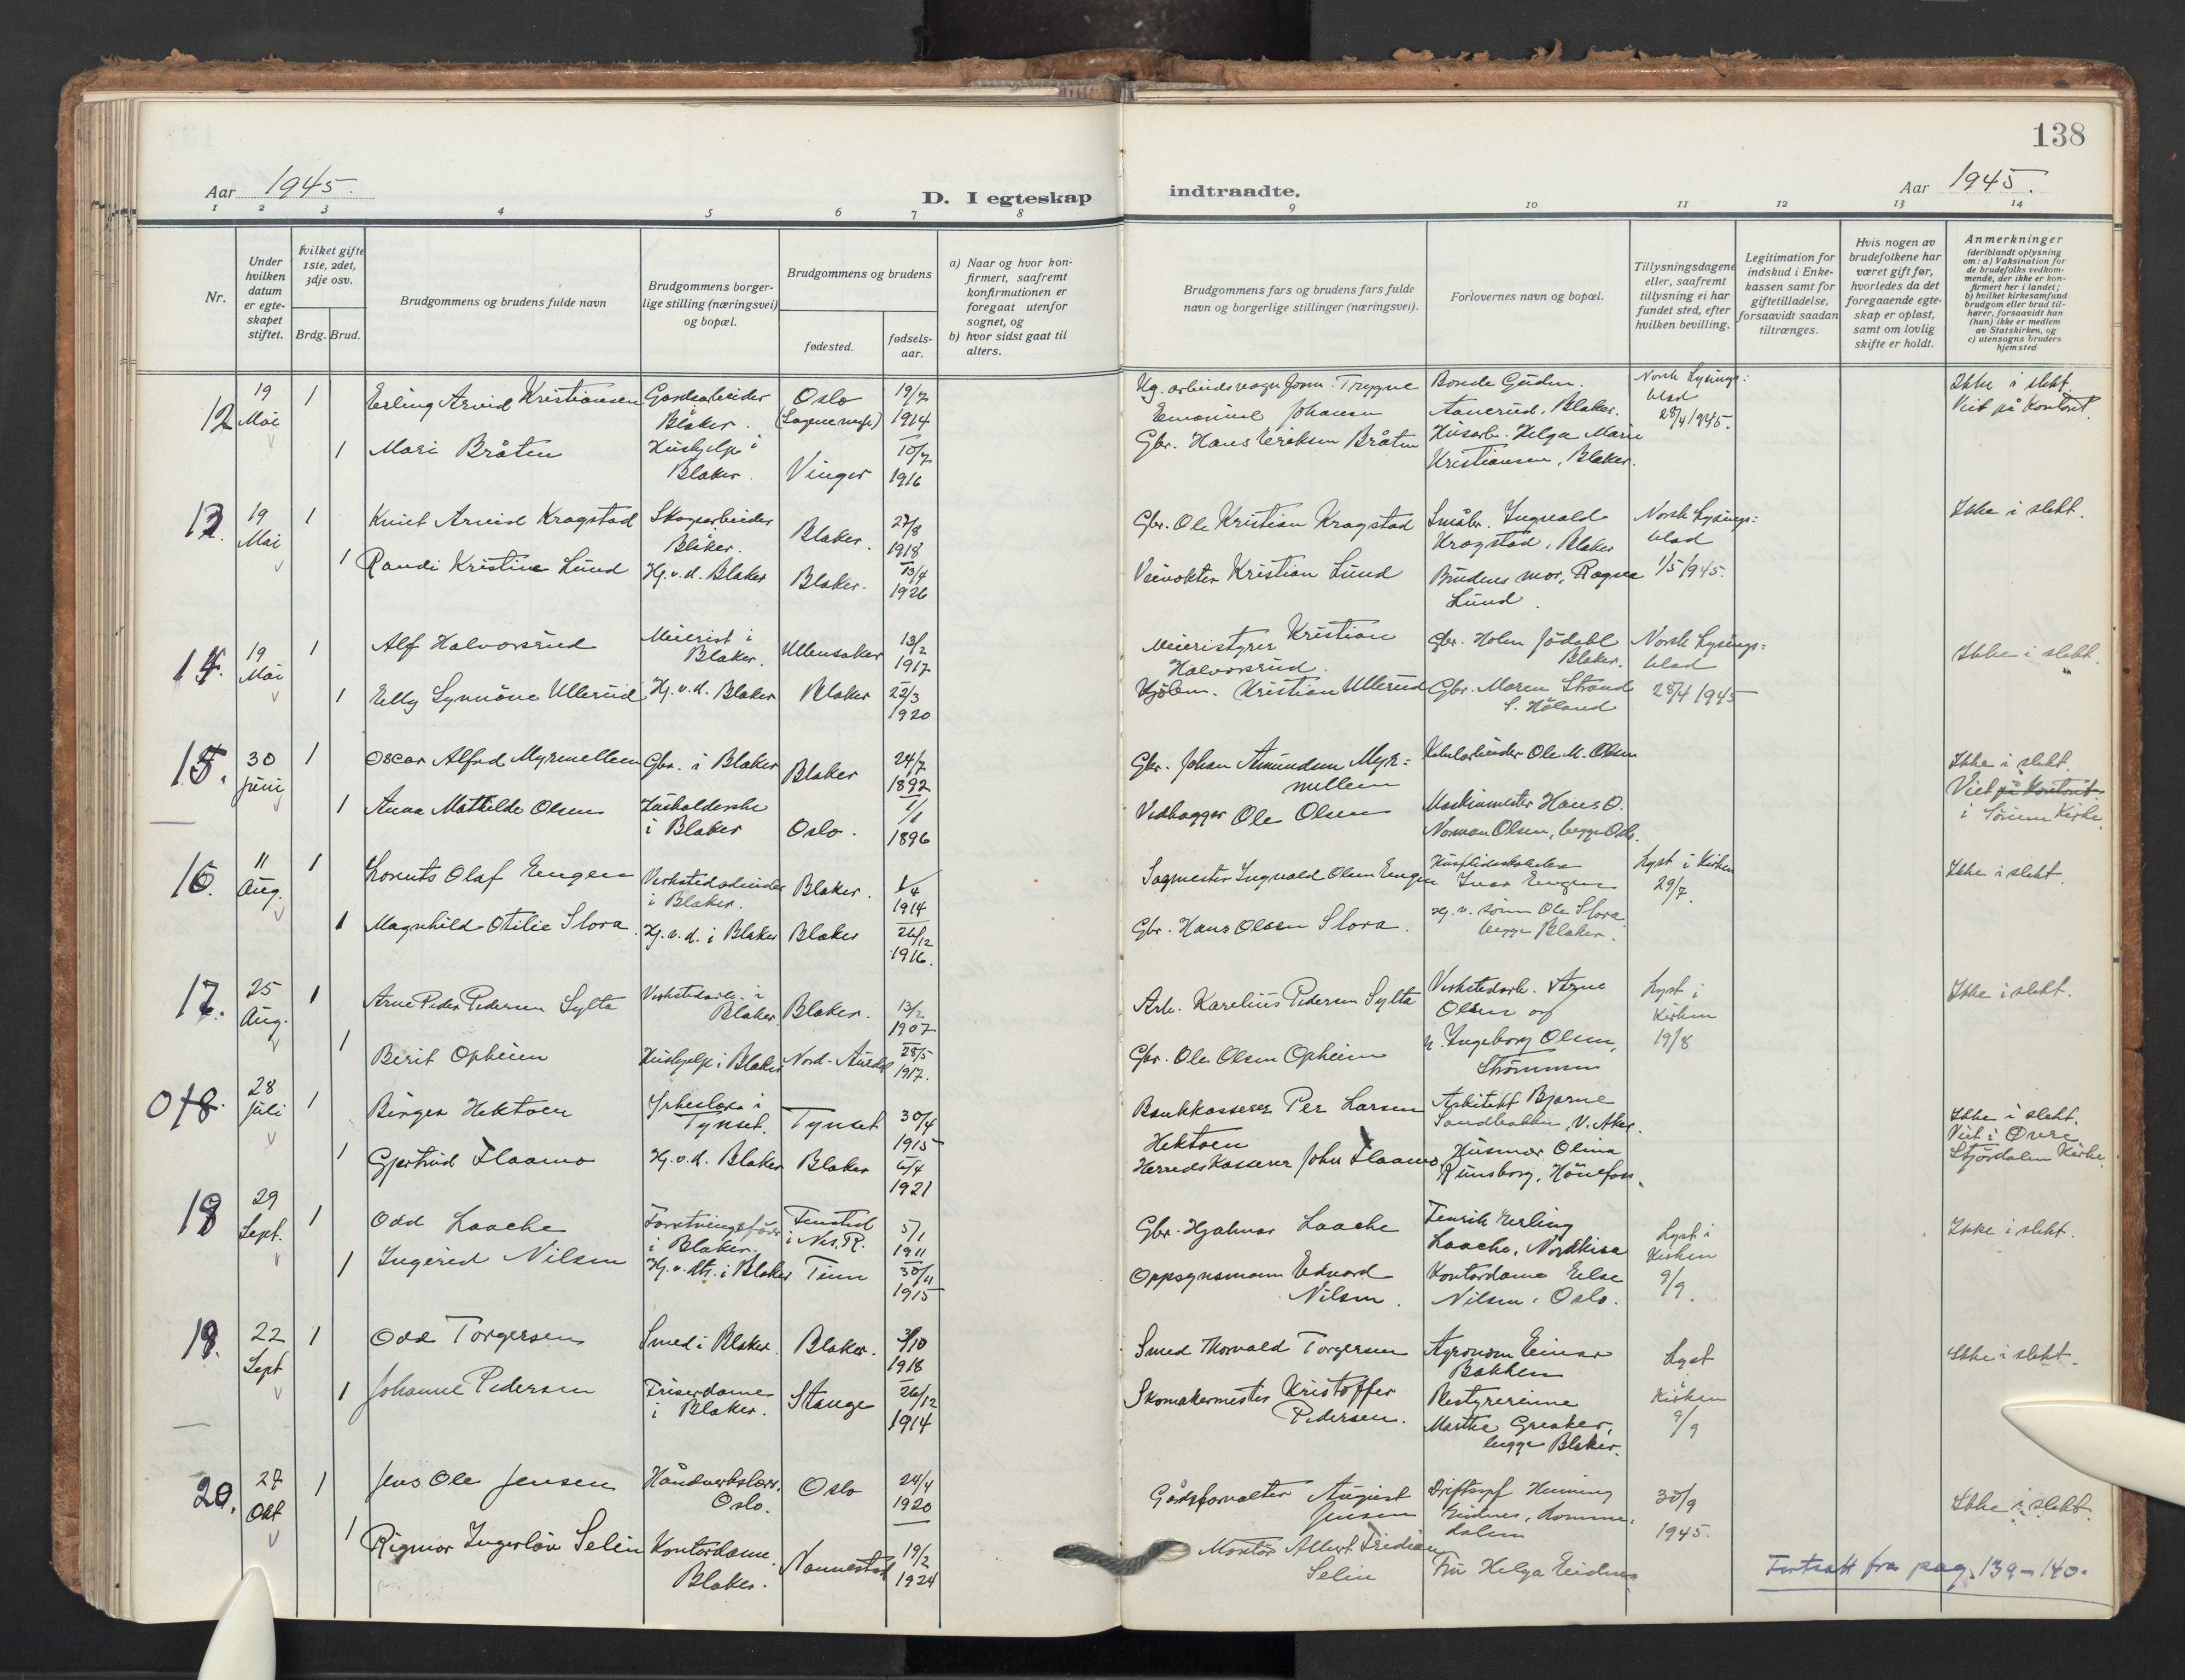 138
Aar 1945.
D. I egteskap indtraadte.
Aar 1945.
1 2 3 4 5 6 7 8 9 10 11 12 13 14
Nr.
Under hvilken datum er egteskapet stiftet.
Hvilket gifte 1ste, 2det, 3dje osv.
Brdg. Brud.
Brudgommens og brudens fulde navn
Brudgommens borgerlige stilling (næringsvei) og bopæl.
Brudgommens og brudens
fødested.
fødselsaar.
a) Naar og hvor konfirmert, saafremt konfirmationen er foregaat utenfor sognet, og
b) hvor sidst gaat til alters.
Brudgommens fars og brudens fars fulde navn og borgerlige stillinger (næringsvei).
Forlovernes navn og bopæl.
Tillysningsdagene eller, saafremt tillysning ei har fundet sted, efter hvilken bevilling.
Legitimation for indskud i Enkekassen samt for giftetilladelse, forsaavidt saadan tiltrænges.
Hvis nogen av brudefolkene har været gift før, hvorledes da det foregaaende egteskap er opløst, samt om lovlig skifte er holdt.
Anmerkninger
(deriblandt oplysning om: a) Vaksination for de brudefolks vedkommende, der ikke er konfirmert her i landet; b) hvilket kirkesamfund brudgom eller brud tilhører, forsaavidt han (hun) ikke er medlem av Statskirken, og c) utensogns bruders hjemsted
12 19 Mai 1 Erling Arvid Kristiansen Gardsarbeider Blaker. Oslo 19/7 1914 Trygve Emanuel Johansen Bonde Gudm. Aanerud, Blaker. Norsk Lysingsblad 28/4 1945. Ikke i slekt. Viet på Kontoret.
1 Mari Bråten Hushjelp i Blaker. Vinger 10/7 1916 Gbr. Hans Eriksen Bråten Husarb. Helga Marie Kristiansen, Blaker.
13. 19 Mai 1 Knut Arvid Kragstad Skogsarbeider Blaker. Blaker. 27/8 1918 Gbr. Ole Kristian Kragstad Småbr. Ingvald Kragstad, Blaker Norsk Lysingsblad 1/5 1945. Ikke i slekt.
1 Randi Kristine Lund Hj.v.d. Blaker Blaker. 13/4 1926 Veivokter Kristian Lund Brudens mor, Ragna Lund.
14. 19 Mai 1 Alf Halvorsrud Meierist i Blaker. Ullensaker 13/2 1917 Meieristyrer Kristian Halvorsrud. Gbr. Holm Jödahl Blaker. Norsk Lysingsblad 28/4 1945 Ikke i slekt.
1 Elly Synnöve Ullerud Hj.v.d. Blaker Blaker 22/3 1920 Kristian Ullerud Gbr. Maren Strand S. Höland
15. 30 Juni 1 Oscar Alfred Myrmellem Gbr. i Blaker Blaker 24/7 1892 Gbr. Johan Amundsen Myrmellem Ole M. Olsen Ikke i slekt. Viet på Kontoret. i Sörum Kirke.
1 Anna Mathilde Olsen Husholderske i Blaker Oslo. 1/1 1896 Vedhogger Ole Olsen Maskinmester Hans O. Norman Olsen, begge Oslo.
16. 11 Aug. 1 Lorents Olaf Engen Verkstedarbeider i Blaker. Blaker. 1/4 1914 Sagmester Ingvald Olsen Engen Ivar Engen Lyst i Kirken 29/7. Ikke i slekt.
1 Magnhild Otilie Slora Hj.v.d. i Blaker Blaker 26/12 1916. Gbr. Hans Olsen Slora. Hj.v. sönn Ole Slora begge Blaker.
17. 25 Aug. 1 Arne Peder Pedersen Sylta Verkstedarb. i Blaker Blaker. 13/2 1907 Arb. Karelius Pedersen Sylta Verkstedarb. Arne Olsen og Lyst i Kirken 19/8 Ikke i slekt.
1 Berit Opheim Hushjelp i Blaker Nord-Aurdal 28/5 1917. Gbr. Ole Olsen Opheim Ingeborg Olsen, Strömmen
018. 28 Juli 1 Birger Hektoen Yrkeslærer i Tynset. Tynset 30/4 1915 Bankkasserer Per Larsen Hektoen Arkitekt Bjarne Sandbakken, V. Aker. Ikke i slekt. Viet i Övre Stjördalen Kirke.
1 Gjertrud Flaamo Hj.v.d. Blaker Blaker 6/4 1921 Herredskasserer John Flaamo Husmor Olina Runsborg, Hönefoss.
18 29 Sept. 1 Odd Laache Forretningsförer i Blaker. Fenstad i Nes, R. 5/1 1911 Gbr. Hjalmar Laache Fenrik Erling Laache, Nordkisa Lyst i Kirken 9/9. Ikke i slekt.
1 Ingerid Nilsen Hj.v. dtr. i Blaker Tinn 30/11 1915 Oppsynsmann Edvard Nilsen. Kontordame Else Nilsen, Oslo.
19. 22 Sept 1 Odd Torgersen Smed i Blaker. Blaker. 3/10 1918 Smed Thorvald Torgersen Agronom Einar Bakken Lyst i Kirken 9/9 Ikke i slekt.
1 Johanne Pedersen Friserdame i Blaker. Stange 26/12 1914 Skomakermester Kristoffer Pedersen. Bestyrerinne Marthe Greaker, begge Blaker.
20. 27 Okt 1 Jens Ole Jensen Håndverkslær. Oslo. Oslo 24/4 1920 Godsforvalter August Jensen Driftsopf Henning Eidnes, Lommedalen 30/9 1945. Ikke i slekt.
1 Rigmor Ingerlöv Selin Kontordame. Blaker. Nannestad 19/2 1924 Montör Albert Fridian Selin Fru Helga Eidnes
Fortsatt fra pag. 139-140.